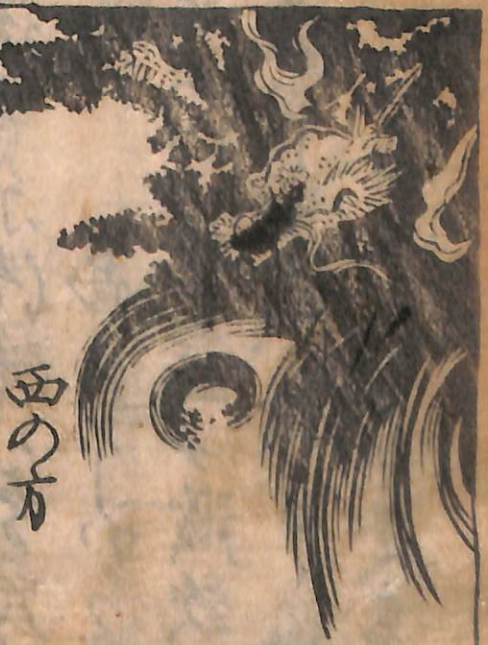 西の方